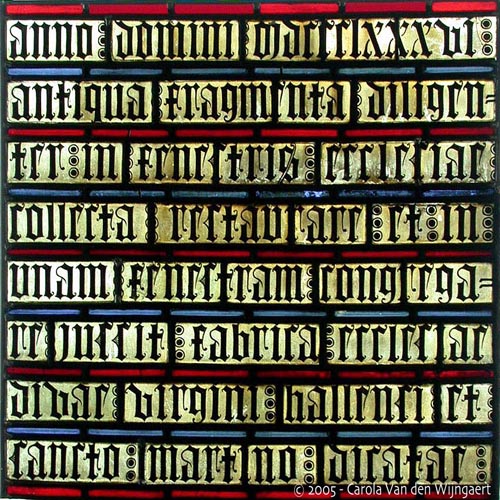 anno domini mdccclxxxvi
antiqua fragmenta diligen=
ter in fenestris ecclesiae
collecta restaurare et in
unam fenestram congrega=
re jussit fabrica ecclesiae
divae virgini hallensi et
sancto martino dicatae
© 2005 - Carola Van den Wijngaert